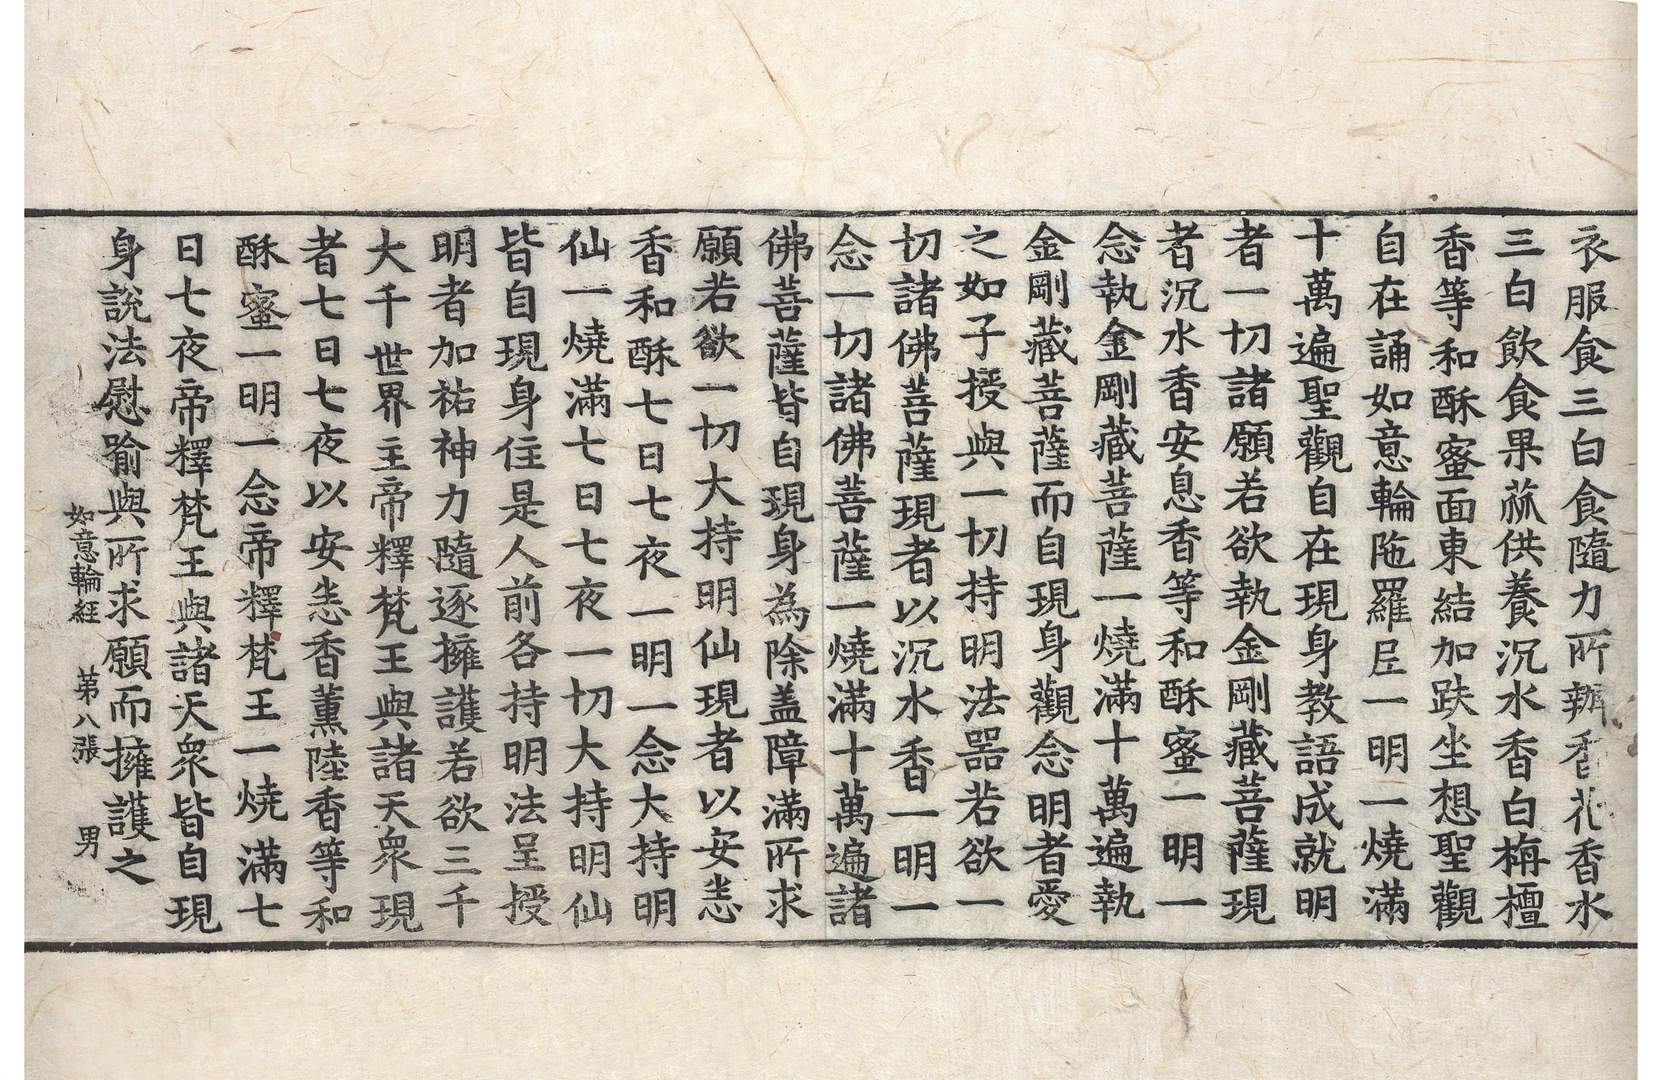 衣服食三白食隨力所辦香花香水
三白飲食果蓏供養沉水香白栴檀
香等和酥蜜面東結加趺坐想聖觀
自在誦如意輪陁羅尼一明一燒滿
十萬遍聖觀自在現身教語成就明
者一切諸願若欲執金剛藏菩薩現
者沉水香安息香等和酥蜜一明一
念執金剛藏菩薩一燒滿十萬遍執
金剛藏菩薩而自現身觀念明者愛
之如子授與一切持明法器若欲一
切諸佛菩薩現者以沉水香一明一
念一切諸佛菩薩一燒滿十萬遍諸
佛菩薩皆自現身為除盖障滿所求
願若欲一切大持明仙現者以安悉
香和酥七日七夜一明一念大持明
仙一燒滿七日七夜一切大持明仙
皆自現身住是人前各持明法呈授
明者加祐神力隨逐擁護若欲三千
大千世界主帝釋梵王與諸天衆現
者七日七夜以安悉香薰陸香等和
酥蜜一明一念帝釋梵王一燒滿七
日七夜帝釋梵王與諸天衆皆自現
身說法慰喻與所求願而擁護之
如意輪經 第八張 男